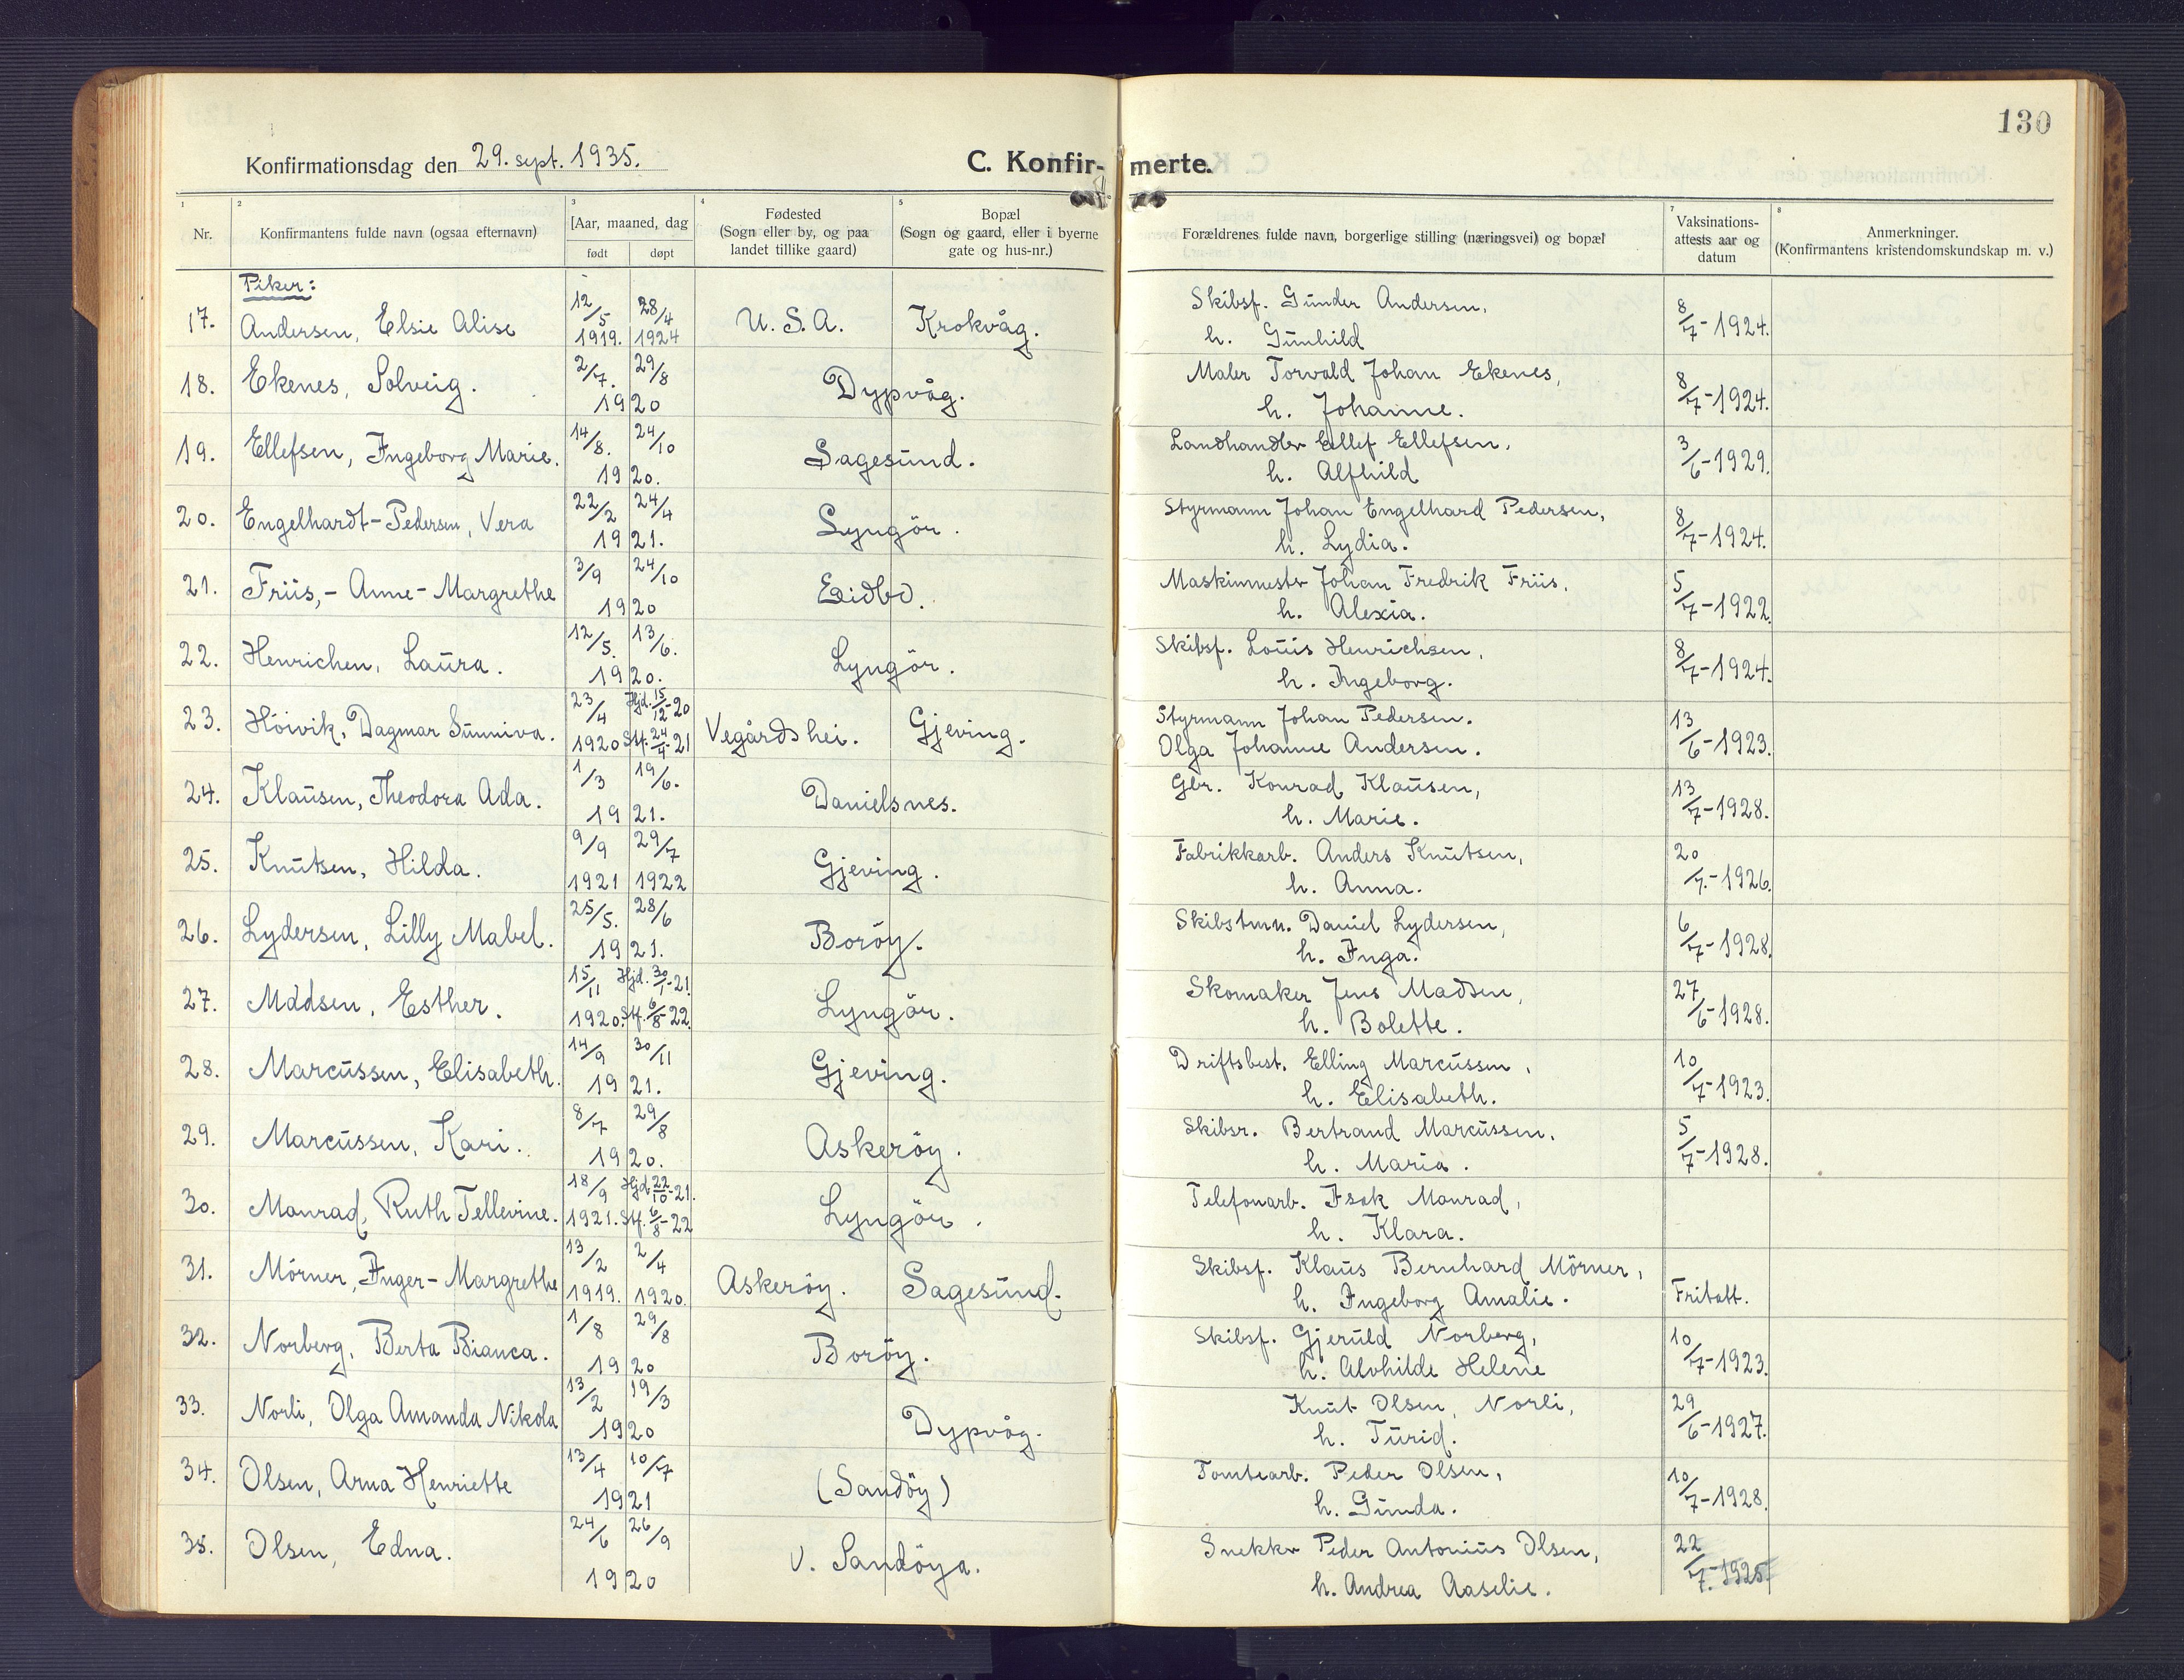 130
Konfirmationsdag den 29. sept. 1935.
C. Konfir-merte.
1 2 3 4 5 7 8
Nr.
Konfirmantens fulde navn (ogsaa efternavn)
[Aar, maaned, dag
født døpt
Fødested
(Sogn eller by, og paa
landet tillike gaard)
Bopæl
(Sogn og gaard, eller i byerne
gate og hus-nr.)
Forældrenes fulde navn, borgerlige stilling (næringsvei) og bopæl
Vaksinations-
attests aar og
datum
Anmerkninger.
(Konfirmantens kristendomskundskap m. v.)
Piker:
17. Andersen, Elsie Alise 12/5 1919. 28/4 1924 U.S.A. Krokvåg. Skibsf. Gunder Andersen, 8/7-1924.
h. Gunhild
18. Ekenes, Solveig. 2/7. 29/8 Dypvåg. Maler Torvald Johan Ekenes, 8/7-1924.
1920 h. Johanne.
19. Ellefsen, Ingeborg Marie. 14/8. 24/10 Sagesund. Landhandler Ellef Ellefsen, 3/6-1929.
1920. h. Alfhild
20. Engelhardt-Pedersen, Vera 22/2 24/4 Lyngör. Styrmann Johan Engelhard Pedersen, 8/7-1924.
1921. h. Lydia.
21. Friis,- Anne-Margrethe 3/9 24/10 Eidbo. Maskinmester Johan Fredrik Friis, 5/7-1922.
1920 h. Alexia.
22. Henrichen, Laura. 12/5. 13/6. Lyngör. Skibsf. Louis Henrichsen, 8/7-1924.
1920. h. Ingeborg.
23. Höivik, Dagmar Sunniva. 23/4 Hjd. 15/12-20 Vegårdshei. Gjeving. Styrmann Johan Pedersen. 13/6-1923.
1920 Stf. 24/4-21 Olga Johanne Andersen.
24. Klausen, Theodora Ada. 1/3 19/6. Danielsnes. Gbr. Konrad Klausen, 13/7-1928.
1921. h. Marie.
25. Knutsen, Hilda. 9/9 29/7 Gjeving. Fabrikkarb. Anders Knutsen, 20/7.-1926.
1921 1922 h. Anna.
26. Lydersen, Lilly Mabel. 25/5. 28/6 Boröy. Skibstmn. Daniel Lydersen, 6/7-1928.
1921. h. Inga.
27. Madsen, Esther. 15/11 Hjd. 30/1-21. Lyngör. Skomaker Jens Madsen, 27/6-1928.
1920. Stf. 6/8-22. h. Bolette.
28. Marcussen, Elisabeth. 14/9 30/11 Gjeving. Driftsbest. Elling Marcussen, 10/7-1923.
1921. h. Elisabeth.
29. Marcussen, Kari. 8/7 29/8 Askeröy. Skibsr. Bertrand Marcussen, 5/7-1928.
1920. h. Maria.
30. Monrad, Ruth Tellevine. 18/9 Hjd 22/10-21. Lyngör. Telefonarb. Isak Monrad,
1921. Stf. 6/8-22 h. Klara.
31. Mörner, Inger-Margrethe 13/2 2/4 Askeröy. Sagesund. Skibsf. Klaus Bernhard Mörner, Fritatt.
1919. 1920. h. Ingeborg Amalie.
32. Norberg, Berta Bianca. 1/8 29/8 Boröy. Skibsf. Gjeruld Norberg, 10/7-1923.
1920 h. Alvhilde Helene
33. Norli, Olga Amanda Nikola 13/2 19/3 Dypvåg. Knut Olsen, Norli, 29/6-1927.
1920 h. Turid.
34. Olsen, Arna Henriette 13/4 10/7 (Sandöy) Tomtearb. Peder Olsen, 10/7-1928.
1921 h. Gunda.
35. Olsen, Edna. 24/6 26/9 V. Sandöya. Snekker Peder Antonius Olsen, 22/7.-1925.
1920 h. Andrea Aaselie.